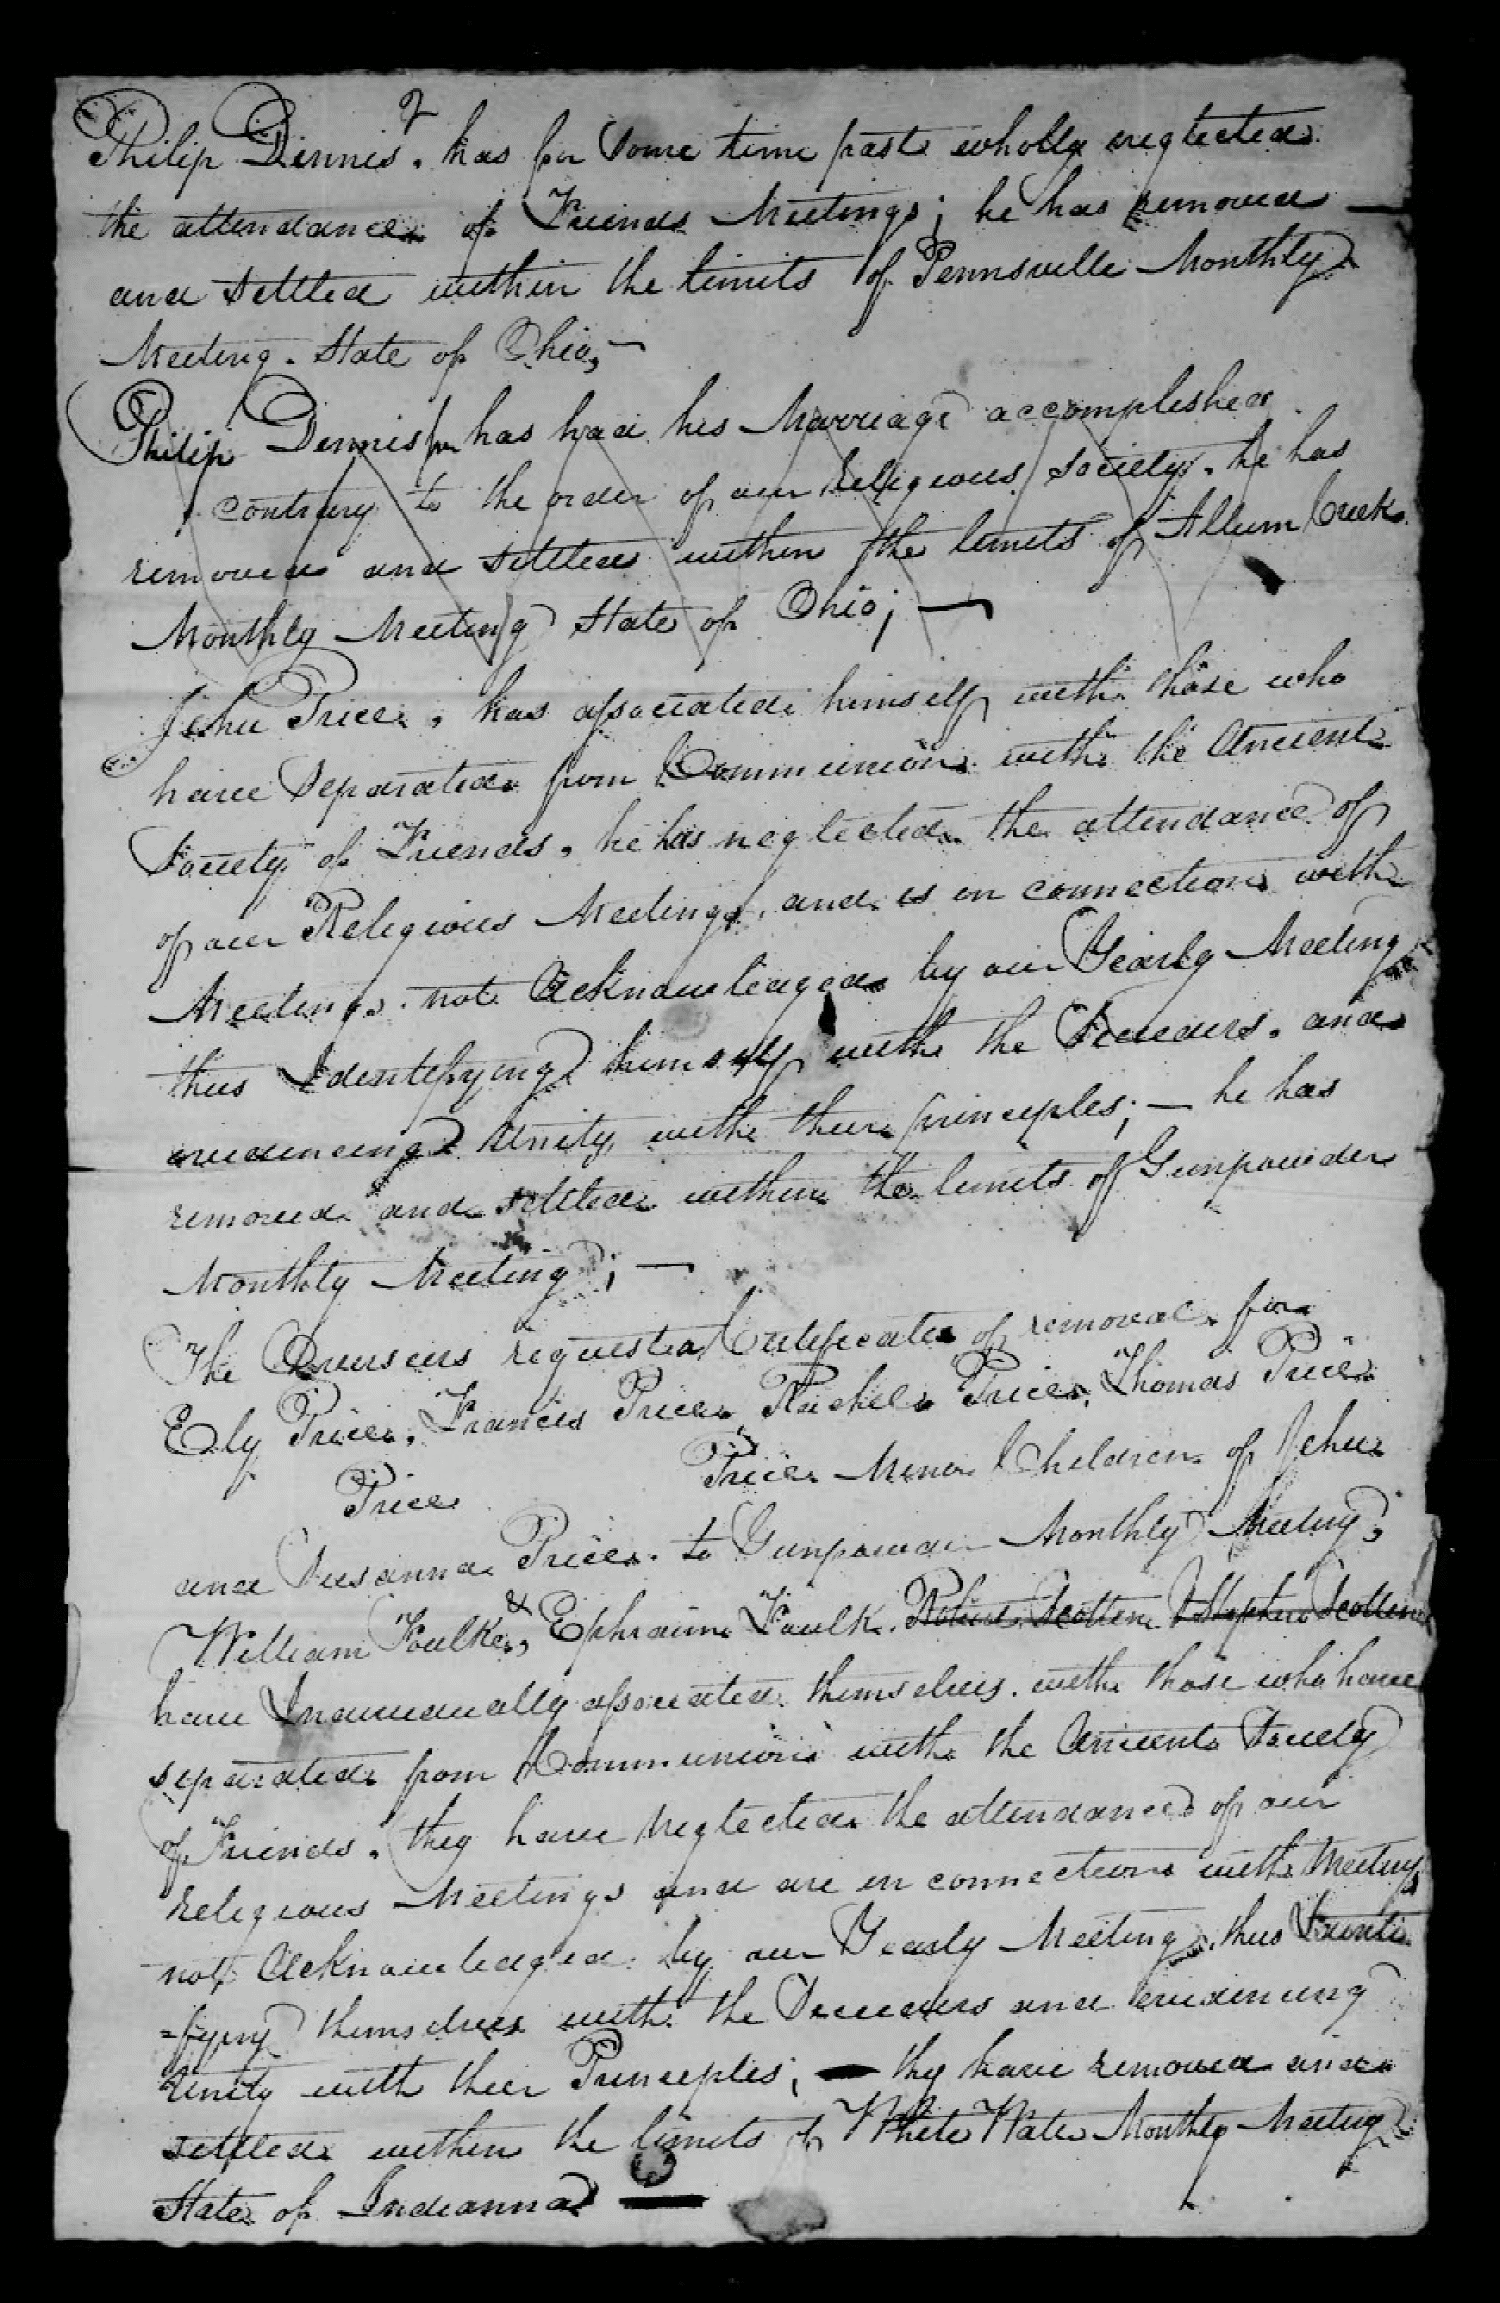 Philip Dennis, has for Some time past wholly neglected
the attendance of Friends Meetings; he has removed —
and settled within the limits of Pennsville Monthly
Meeting. State of Ohio, —
Philip Dennis Jr has had his Marriage accomplished
contrary to the order of our Religious Society. he has
removed and settled within the limits of Allum Creek
Monthly Meeting State of Ohio; —
Jehu Price, has associated himself with those who
have Separated from Communion with the Ancient
Society of Friends, he has neglected the attendance of
of our Religious Meetings, and is in connection with
Meetings not Acknowledged by our Yearly Meeting
thus Identifying himself with the Seceders. and
evidencing Unity with their principles; — he has
removed and settled within the limits of Gunpowder
Monthly Meeting; —
The Overseers requested Certificates of removal for
Ely Price, Francis Price, Rachel Price, Thomas Price
Price Price Minor Children of Jehu
and Susanna Price to Gunpowder Monthly Meeting,
William Foulke, & Ephraim Foulk. Scotten & Stephen Scotten
have Individually associated themselves with those who have
separated from Communion with the Ancient Society
of Friends. they have Neglected the attendance of our
Religious Meetings and are in connection with Meetings
not Acknowledged by our Yearly Meeting, thus Identi
=fying themselves with the Seceders and evidencing
Unity with their Principles; — thy have removed and
settled within the limits of White Water Monthly Meeting
State of Indianna —